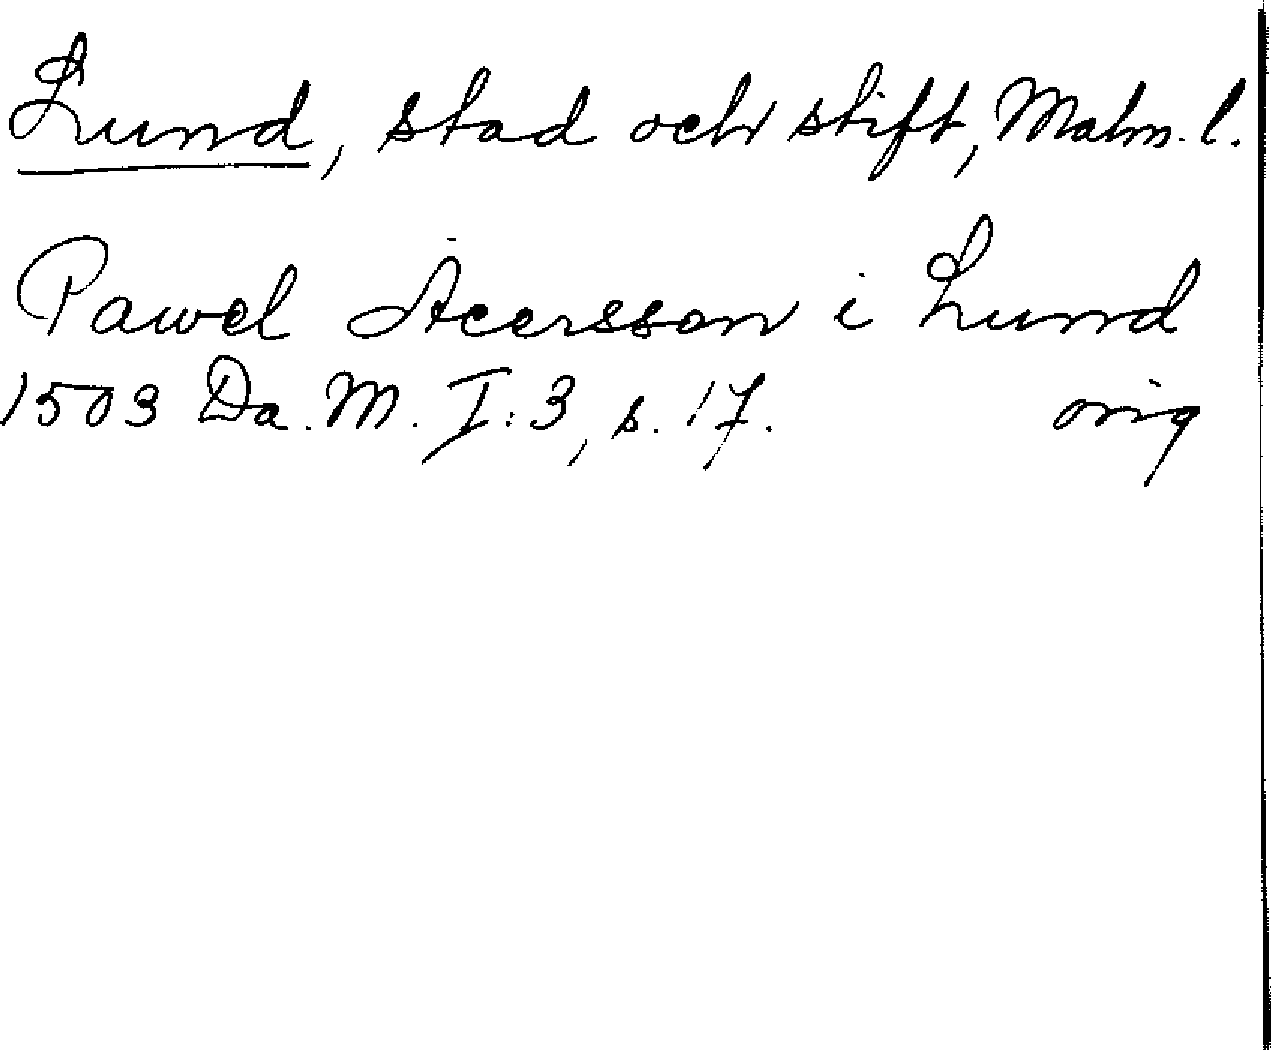 Lund, stad och stift, Malm. l.
Pawel Acersson i Lund
1503 Da. M. I: 3, s. 17. orig